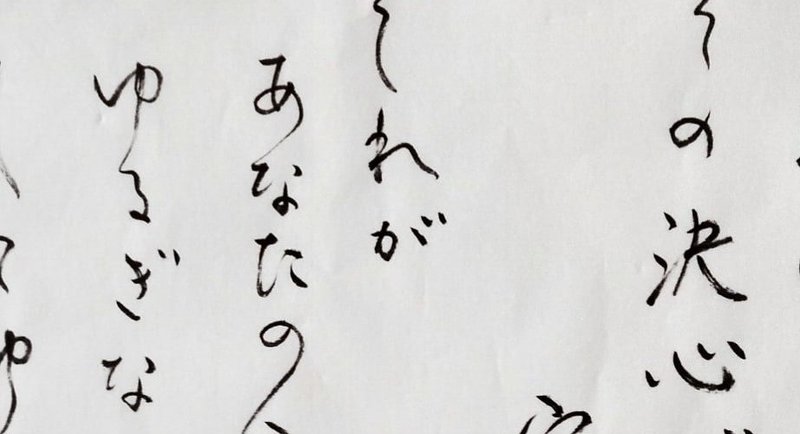 その決心
それが
あなたの
ゆるぎな